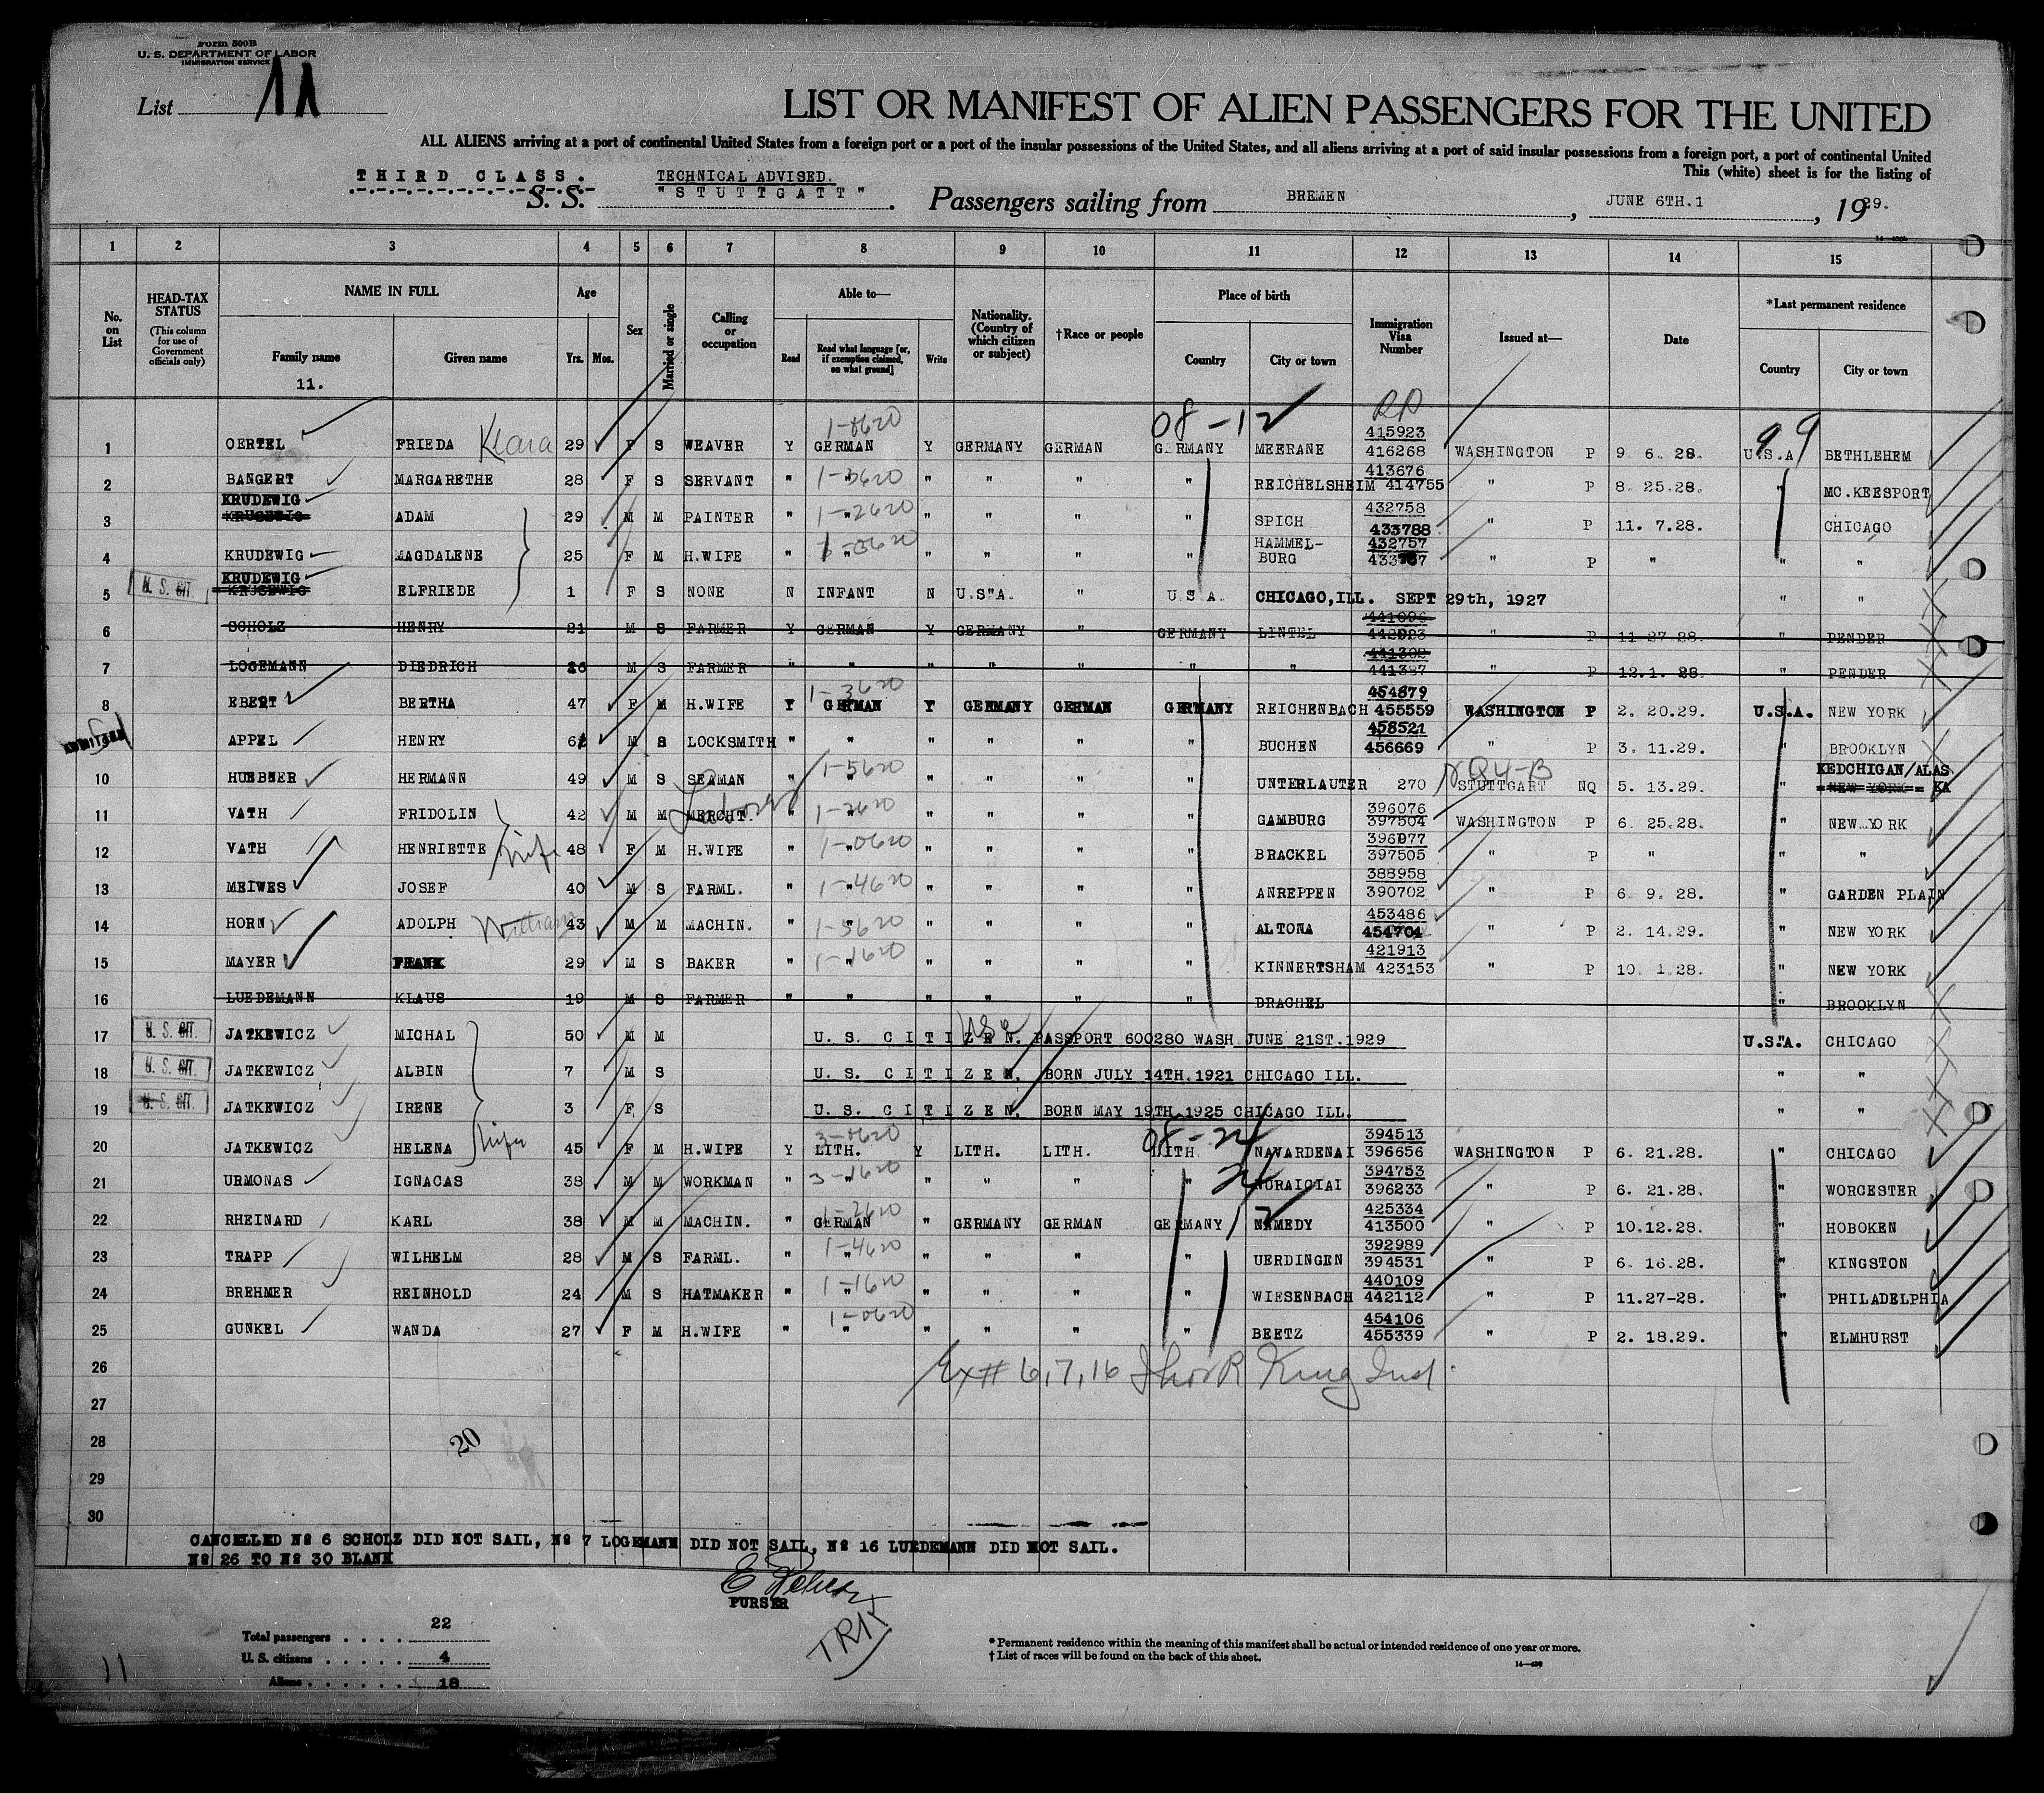 Form 500B
U. S. DEPARTMENT OF LABOR
IMMIGRATION SERVICE
List 11
LIST OR MANIFEST OF ALIEN PASSENGERS FOR THE UNITED
ALL ALIENS arriving at a port of continental United States from a foreign port or a port of the insular possessions of the United States, and all aliens arriving at a port of said insular possessions from a foreign port, a port of continental United
This (white) sheet is for the listing of
THIRD CLASS.
TECHNICAL ADVISED.
S. S. "STUTTGATT". Passengers sailing from BREMEN, JUNE 6TH.1, 1929.
1 2 3 4 5 6 7 8 9 10 11 12 13 14 15
No. on List
HEAD-TAX STATUS
(This column for use of Government officials only)
NAME IN FULL
Family name
11.
Given name
Age
Yrs. Mos.
Sex
Married or single
Calling or occupation
Able to—
Read
Read what language [or, if exemption claimed, on what ground]
Write
Nationality. (Country of which citizen or subject)
†Race or people
Place of birth
Country
City or town
Immigration Visa Number
Issued at—
Date
*Last permanent residence
Country
City or town
08-12
99
1 OERTEL FRIEDA Klara 29 F S WEAVER Y GERMAN 1-0620 Y GERMANY GERMAN GERMANY MEERANE 415923 416268 WASHINGTON P 9. 6. 28. U.S.A. BETHLEHEM
2 BANGERT MARGARETHE 28 F S SERVANT " " 1-3620 " " " " REICHELSHEIM 413676 414755 " P 8. 25.28. " MC.KEESPORT
3 KRUDEWIG ADAM 29 M M PAINTER " " 1-2620 " " " " SPICH 432758 433788 " P 11. 7.28. CHICAGO
4 KRUDEWIG MAGDALENE 25 F M H.WIFE " " " " " " HAMMEL-BURG 432757 433787 " P " " "
5 U. S. CIT. KRUDEWIG ELFRIEDE 1 F S NONE N INFANT N U.S.A. " U.S.A. CHICAGO,ILL. SEPT 29th, 1927 " "
6 SCHOLZ HENRY 21 M S FARMER Y GERMAN Y GERMANY " GERMANY LINTEL " P 11-27-28. " PENDER
7 LOGEMANN DIEDRICH 26 M S FARMER " " " " " " " 441387 " P 12.1. 28. " PENDER
8 EBERT BERTHA 47 F M H.WIFE Y GERMAN 1-3620 Y GERMANY GERMAN GERMANY REICHENBACH 454879 455559 WASHINGTON P 2. 20.29. U.S.A. NEW YORK
ADMITTED APPEL HENRY M S LOCKSMITH " " " " " " BUCHEN 458521 456669 " P 3. 11.29. " BROOKLYN
10 HUEBNER HERMANN 49 M S SEAMAN Laborer " " 1-5620 " " " " UNTERLAUTER 270 NQ4-B STUTTGART NQ 5. 13.29. " KEDCHIGAN/ALASKA NEW YORK
11 VATH FRIDOLIN 42 M M MERCHT. " " 1-2620 " " " " GAMBURG 396076 397504 WASHINGTON P 6. 25.28. " NEW YORK
12 VATH HENRIETTE wife 48 F M H.WIFE " " 1-0620 " " " " BRACKEL 396077 397505 " P " " "
13 MEIWES JOSEF 40 M S FARML. " " 1-4620 " " " " ANREPPEN 388958 390702 " P 6. 9. 28. " GARDEN PLAIN
14 HORN ADOLPH William 43 M M MACHIN. " " 1-5620 " " " " ALTONA 453486 454704 " P 2. 14.29. " NEW YORK
15 MAYER FRANK 29 M S BAKER " " 1-1620 " " " " KINNERTSHAM 421913 423153 " P 10. 1.28. " NEW YORK
16 LUEDEMANN KLAUS 19 M S FARMER " " " " " " DRACHEL " BROOKLYN
17 U. S. CIT. JATKEWICZ MICHAL 50 M M U. S. CITIZEN. USA PASSPORT 600280 WASH JUNE 21ST.1929 U.S.A. CHICAGO
18 U. S. CIT. JATKEWICZ ALBIN 7 M S U. S. CITIZEN, BORN JULY 14TH.1921 CHICAGO ILL. " "
19 U. S. CIT. JATKEWICZ IRENE 3 F S U. S. CITIZEN, BORN MAY 19TH.1925 CHICAGO ILL. " "
20 JATKEWICZ HELENA wife 45 F M H.WIFE Y LITH. 3-0620 Y LITH. LITH. LITH. 08-24 NAVARDENAI 394513 396656 WASHINGTON P 6. 21.28. " CHICAGO
21 URMONAS IGNACAS 38 M M WORKMAN " " 3-1620 " " " " 24 NURAICIAI 394753 396233 " P 6. 21.28. " WORCESTER
22 RHEINARD KARL 38 M M MACHIN. " GERMAN 1-2620 " GERMANY GERMAN GERMANY 12 NAMEDY 425334 413500 " P 10.12.28. " HOBOKEN
23 TRAPP WILHELM 28 M S FARML. " " 1-4620 " " " " UERDINGEN 392989 394531 " P 6. 16.28. " KINGSTON
24 BREHMER REINHOLD 24 M S HATMAKER " " 1-1620 " " " " WIESENBACH 440109 442112 " P 11.27-28. " PHILADELPHIA
25 GUNKEL WANDA 27 F M H.WIFE " " 1-0620 " " " " BEETZ 454106 455339 " P 2. 18.29. " ELMHURST
26 Ex# 6,7,16 King Ind
27
28 20
29
30
CANCELLED No 6 SCHOLZ DID NOT SAIL, No 7 LOGEMANN DID NOT SAIL, No 16 LUEDEMANN DID NOT SAIL.
No 26 TO No 30 BLANK
PURSER
TRK
Total passengers . . . . 22
U. S. citizens . . . . . 4
Aliens . . . . . . 18
11
* Permanent residence within the meaning of this manifest shall be actual or intended residence of one year or more.
† List of races will be found on the back of this sheet.